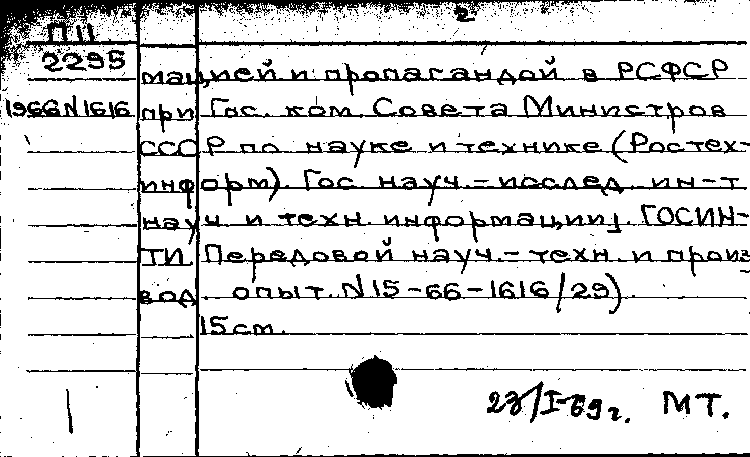 2
П11
2295
1966 N1616
мацией и пропагандой в РСФСР
при Гос. ком. Совета Министров
СССР по науке и технике (Ростех-
информ). Гос. науч.-исслед. ин-т
науч. и техн. информации. ГОСИН-
ТИ. Передовой науч.-техн. и произ
вод. опыт. N15-66-1616/29).
15 см.
23/I-69 г. МТ.